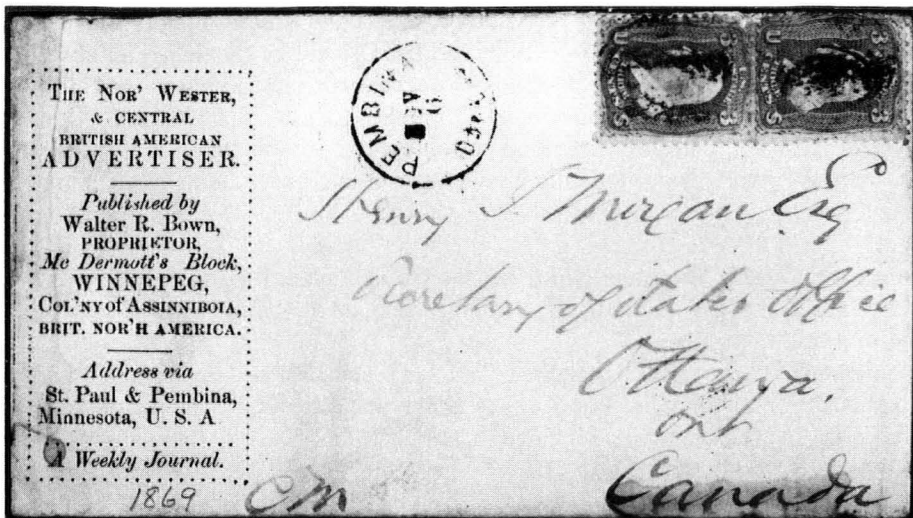 THE NOR' WESTER,
& CENTRAL
BRITISH AMERICAN
ADVERTISER.
Published by
Walter R. Bown,
PROPRIETOR,
Mc Dermott's Block,
WINNEPEG,
COL'NY of ASSINNIBOIA,
BRIT. NOR'H AMERICA.
Address via
St. Paul & Pembina,
Minnesota, U. S. A
A Weekly Journal.
1869
PEMBINA
3 U 3
3 U 3
Henry J. Morgan Esq
Secretary of states office
Ottawa.
Ont
Canada